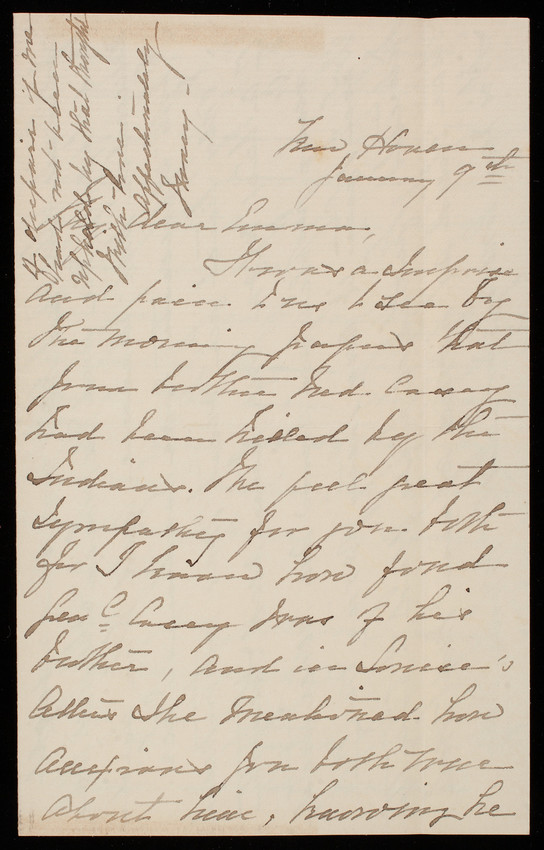 New Haven
January 9th
My dear Emma,
It was a surprise
and pain to us to see by
the morning papers that
your brother Ned Casey
had been killed by the
Indians. We feel great
sympathy for you both
for I know how fond
Genl Casey was of his
brother, and in Louise's
letters she mentioned how
anxious you both were
about him, knowing he
of despair if one
had not been
upheld by that thought
With love
affectionately